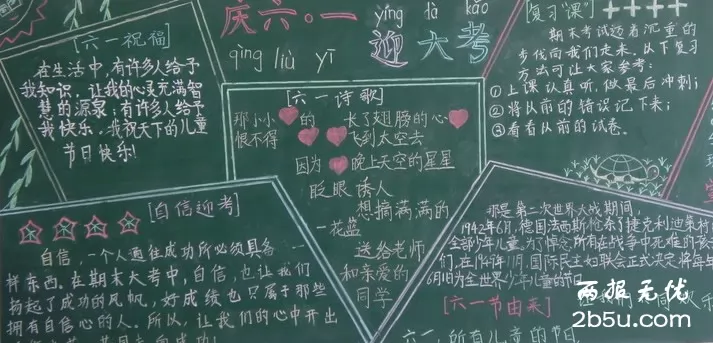 庆六·一
qìng liù yī
yíng dà kǎo
迎大考
[六一祝福]
在生活中,有许多人给予
我知识,让我的心灵充满智
慧的源泉;有许多人给予
我快乐,我祝天下的儿童
节日快乐!
[六一诗歌]
那小小 的 长了翅膀的心
恨不得 飞到太空去
因为 晚上天空的星星
眨眼诱人
想摘满满的
一花篮
送给老师
和亲爱的
同学
[复习“课”]
期末考试迈着沉重的
步伐向我们走来。以下复习
方法可让大家参考:
①上课认真听,做最后冲刺;
②将从前的错误记下来;
③看看从前的试卷。
[自信迎考]
自信,一个人通往成功所必须具备
样东西。在期末大考中,自信,也让我们
扬起了成功的风帆,好成绩也只属于那些
拥有自信心的人。所以,让我们的心中开出
成功!
那是第二次世界大战期间,
1942年6月,德国法西斯枪杀了捷克利迪策村
全部少年儿童。为了悼念所有在战争中死难的孩
们,在1949年11月,国际民主妇联会正式决定将每年
6月1日为全世界少年儿童的节日。
[六一节由来]
六一,所有儿童的节日,
两报无忧
2b5u.com